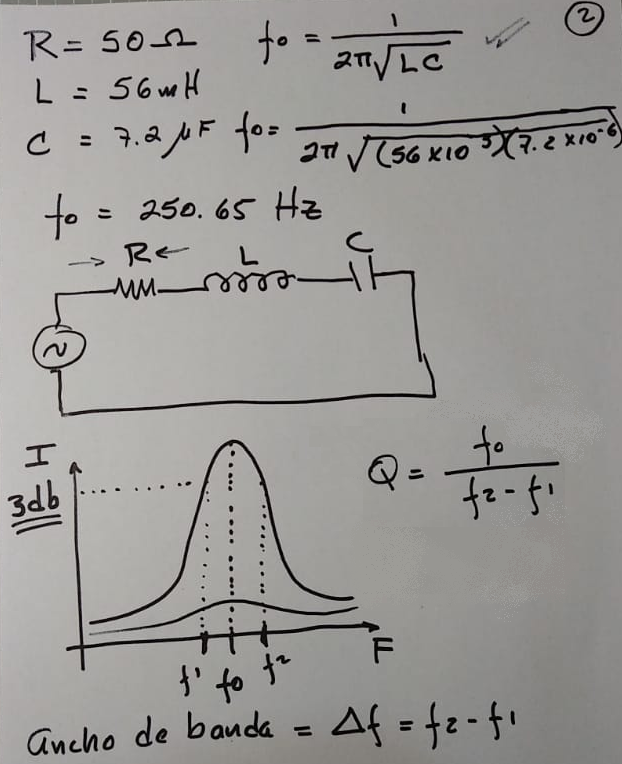 ②
R = 50Ω fo = 1 / 2π√LC
L = 56mH
C = 7.2μF fo = 1 / 2π√(56 x10⁻³)(7.2 x10⁻⁶)
fo = 250.65 Hz
→ R ← L C
~
I
3db
Q = fo / f2 - f1
F
f1 fo f2
ancho de banda = Δf = f2 - f1